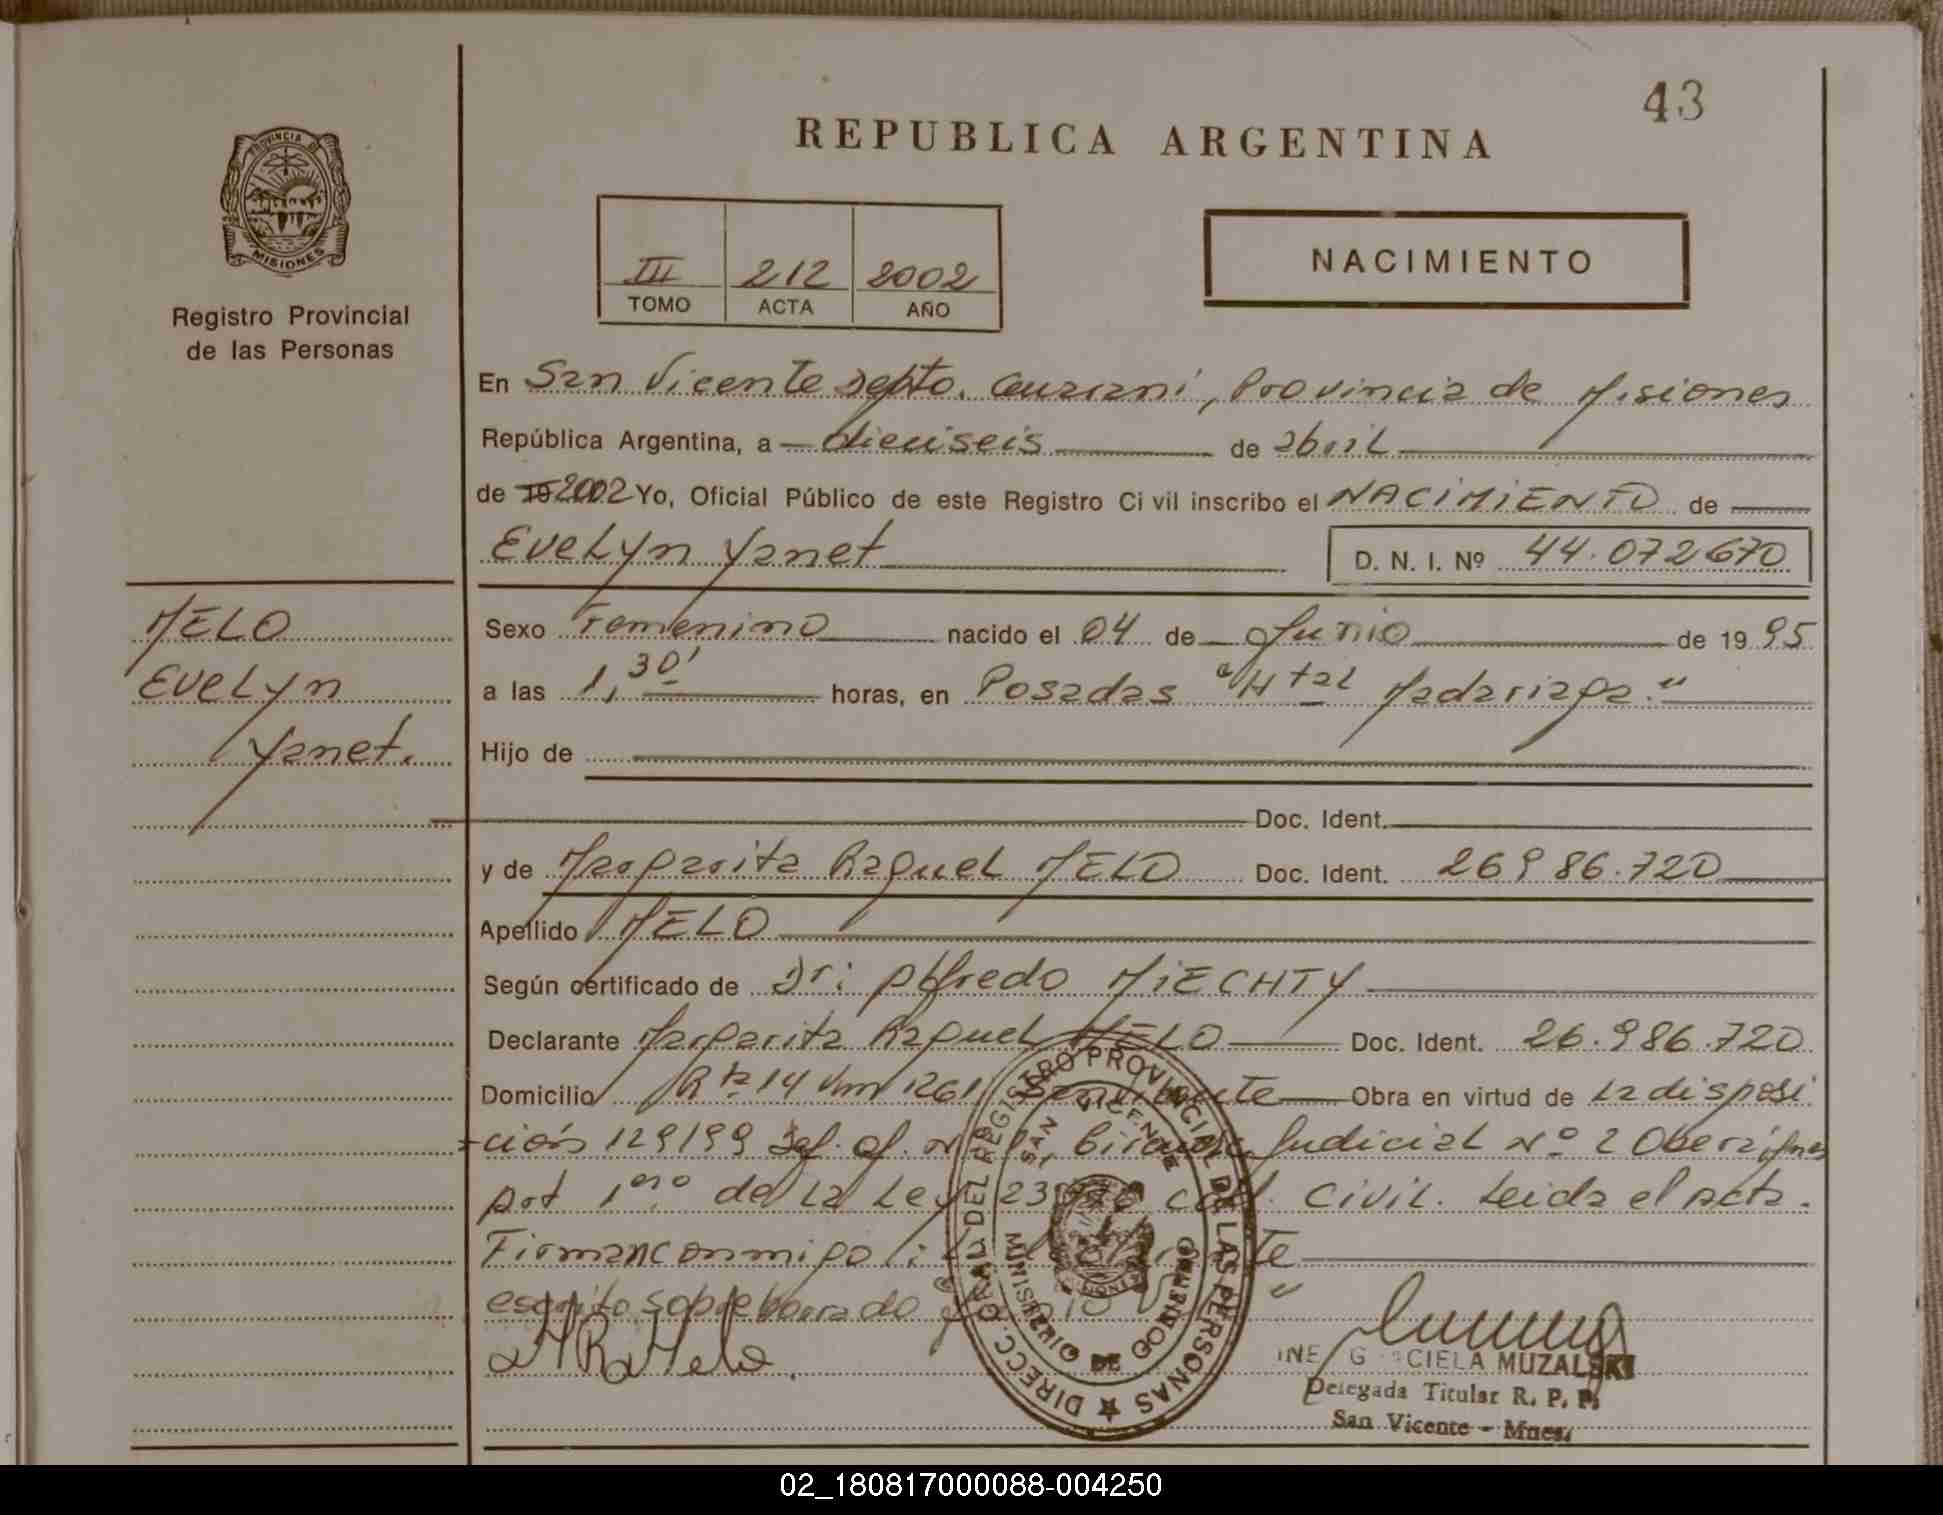 43
REPUBLICA ARGENTINA
PROVINCIA DE
MISIONES
Registro Provincial
de las Personas
III 212 2002
TOMO ACTA AÑO
NACIMIENTO
En San Vicente Depto. Guarani, Provincia de Misiones
República Argentina, a dieciseis de abril
de 19 2002 Yo, Oficial Público de este Registro Civil inscribo el NACIMIENTO de
Evelyn Yanet D. N. I. Nº 44.072670
MELO
Evelyn
Yanet.
Sexo Femenino nacido el 04 de Junio de 1995
a las 1,30' horas, en Posadas "Htal Madariaga."
Hijo de
Doc. Ident.
y de Margarita Raquel MELO Doc. Ident. 26986.720
Apellido MELO
Según certificado de Dr: Alfredo MiECHTY
Declarante Margarita Raquel MELO Doc. Ident. 26.986.720
Domicilio Rta 14 Km 1261 San Vicente Obra en virtud de la disposi
ción 129199 of. Judicial Nº 2 Obera
art 1ero de la Ley Civil. Leida el acta.
Firman conmigo
escrito sobreborrado
MRMelo
DIRECC. GRAL. DEL REGISTRO PROVINCIAL DE LAS PERSONAS
SAN VICENTE
MINISTERIO DE GOBIERNO
INES GRACIELA MUZALSKI
Delegada Titular R. P. P.
San Vicente - Mnes.
02_180817000088-004250